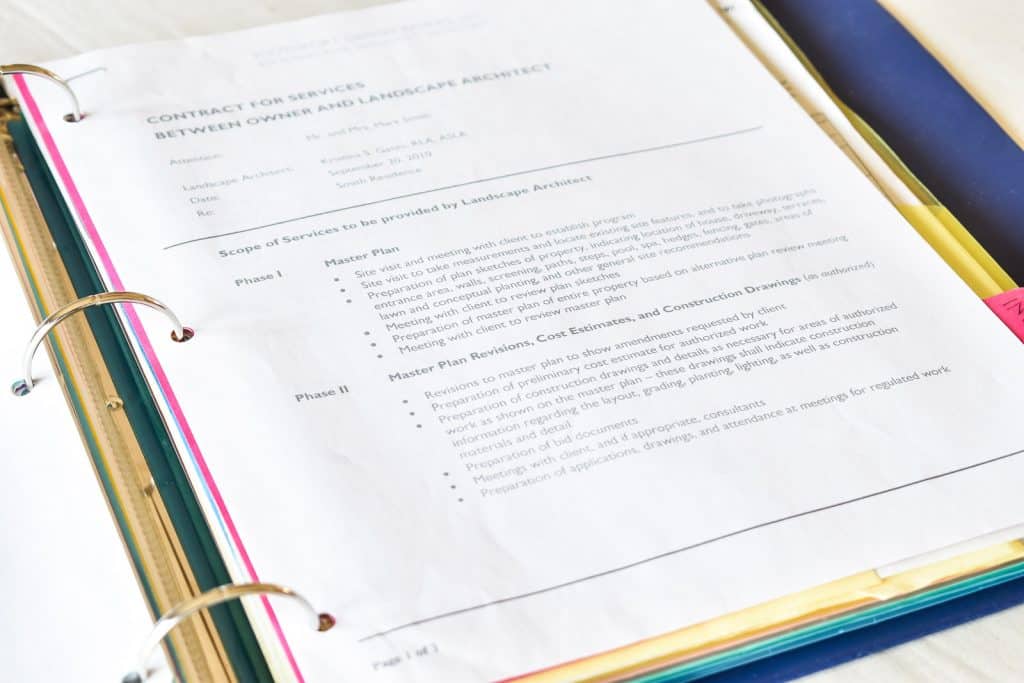 CONTRACT FOR SERVICES
BETWEEN OWNER AND LANDSCAPE ARCHITECT
Attention: Mr. and Mrs. Mark Smith
Landscape Architect: Kristina S. RLA, ASLA
Date: September 20, 2010
Re: Smith Residence
Scope of Services to be provided by Landscape Architect
Phase I Master Plan
• Site visit and meeting with client to establish program
• Site visit to take measurements and locate existing site features, and to take photographs
• Preparation of plan sketches of property, indicating location of house, driveway, terraces,
entrance area, walls, screening, paths, steps, pool, spa, hedges, fencing, gates, areas of
lawn and conceptual planting, and other general site recommendations
• Meeting with client to review plan sketches
• Preparation of master plan of entire property based on alternative plan review meeting
• Meeting with client to review master plan
Phase II Master Plan Revisions, Cost Estimates, and Construction Drawings (as authorized)
• Revisions to master plan to show amendments requested by client
• Preparation of preliminary cost estimate for authorized work
• Preparation of construction drawings and details as necessary for areas of authorized
work as shown on the master plan – these drawings shall indicate construction
information regarding the layout, grading, planting, lighting, as well as construction
materials and detail
• Preparation of bid documents
• Meetings with client, and if appropriate, consultants
• Preparation of applications, drawings, and attendance at meetings for regulated work
Page 1 of 3